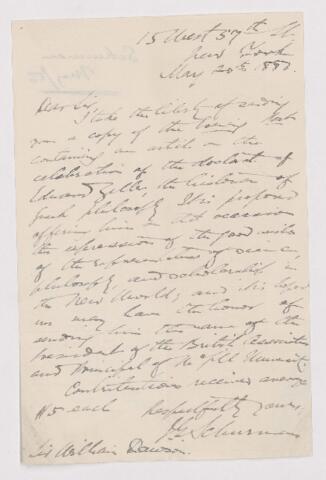 15 West 57th St.
New York
May 20th 1887.
Dear Sir,
I take the liberty of sending
you a copy of the Evening Post
containing an article on the
celebration of the doctorate of
Edward Zeller, the historian of
Greek philosophy. It is proposed
offering him on that occasion
the expression of the good wishes
of the representatives of science,
philosophy, and scholarship in
the New World; and it is hoped
we may have the honor of
sending him the name of the
President of the British Association
and Principal of McGill University.
Contributions received average
$5 each
Respectfully yours,
J G Schurman
Sir William Dawson.
Schurman
May/87